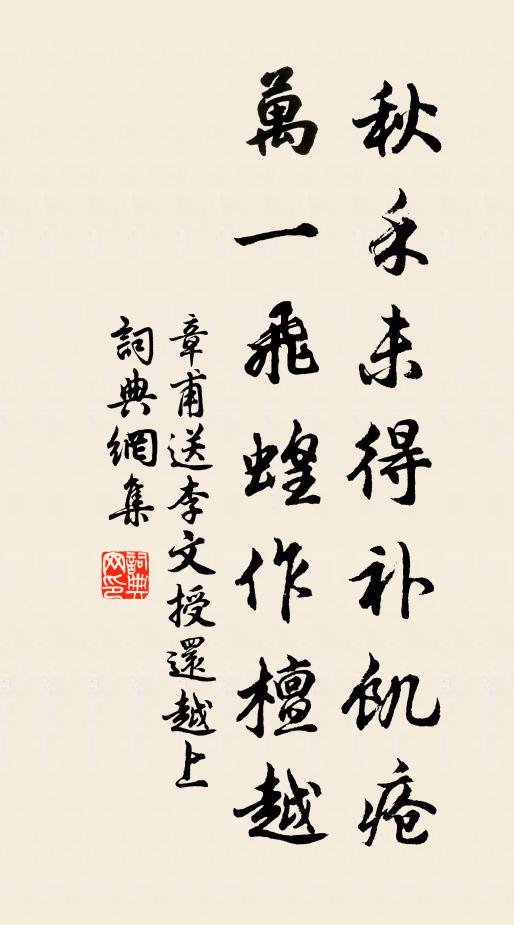 秋禾未得补飢瘡
萬一飛蝗作檀越
章甫送李文授還越上
詞典網集
詞典网印